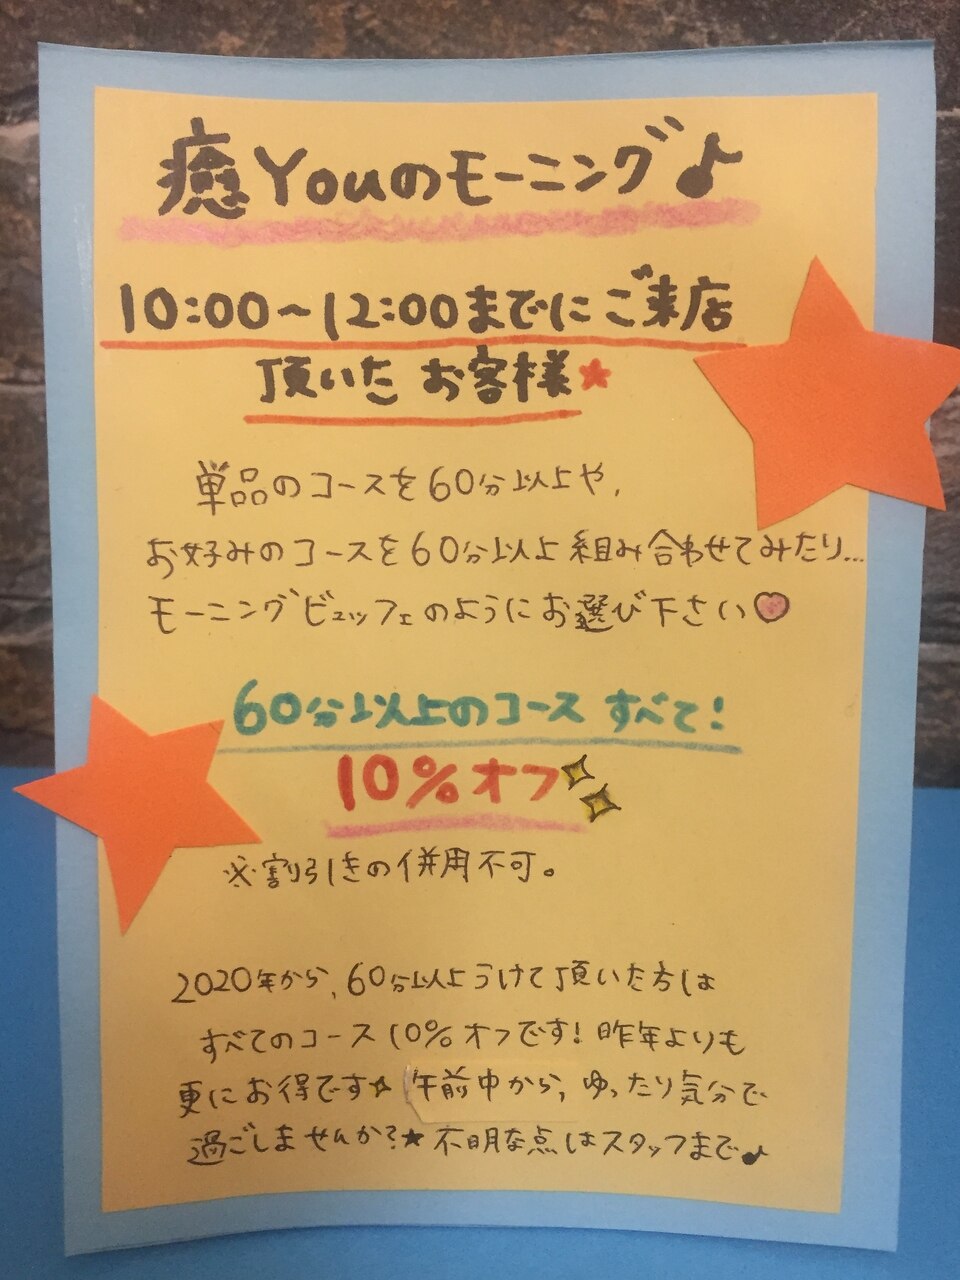 癒Youのモーニング♪
10:00〜12:00までにご来店
頂いた お客様★
単品のコースを60分以上や、
お好みのコースを60分以上組み合わせてみたり...
モーニングビュッフェのようにお選び下さい♡
60分以上のコース すべて!
10%オフ
※割引きの併用不可。
2020年から、60分以上うけて頂いた方は
すべてのコース10%オフです!昨年よりも
更にお得です☆ 午前中から、ゆったり気分で
過ごしませんか?★ 不明な点はスタッフまで♪